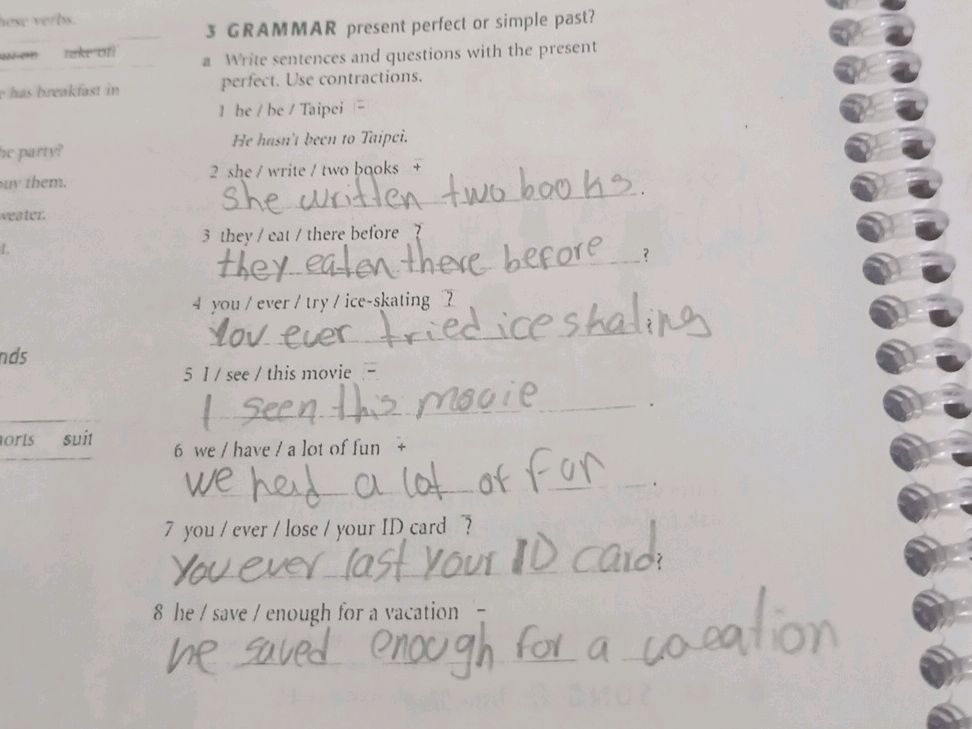 hese verbs.
take off
e has breakfast in
he party?
buy them.
weater.
t.
nds
horts suit
3 GRAMMAR present perfect or simple past?
a Write sentences and questions with the present
perfect. Use contractions.
1 he / be / Taipei -
He hasn't been to Taipei.
2 she / write / two books +
She written two books.
3 they / eat / there before ?
they eaten there before ?
4 you / ever / try / ice-skating ?
You ever tried ice skating
5 I / see / this movie -
I seen this movie .
6 we / have / a lot of fun +
we had a lot of fun .
7 you / ever / lose / your ID card ?
You ever last your ID card?
8 he / save / enough for a vacation -
he saved enough for a vacation